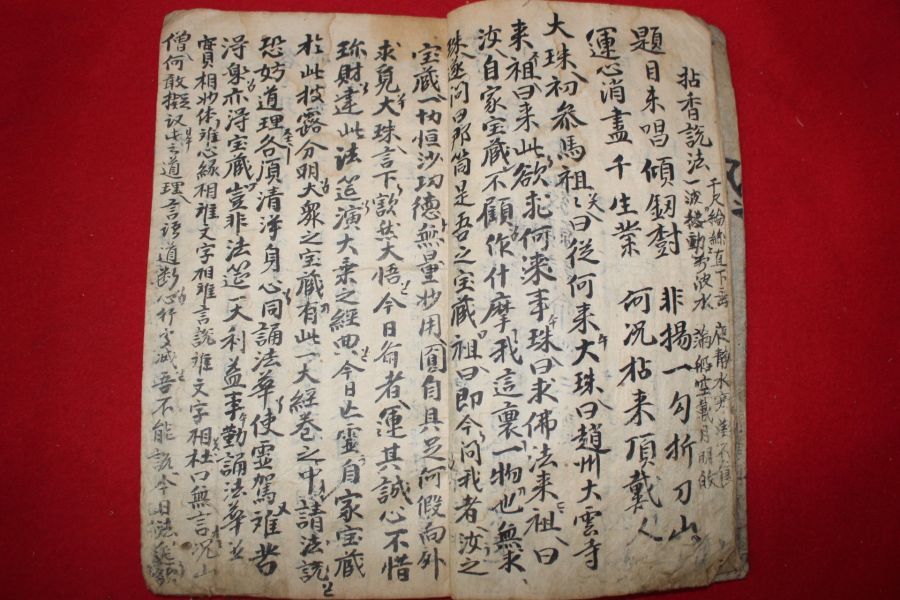 拈香說法
千尺綸絲直下
波搖動 波水
夜靜水寒
滿船空載月明
題目未唱傾釰樹 非揚一句折刀山
運心消盡千生業 何況拈來頂戴人
大珠初叅馬祖 曰從何來大珠曰趙州大雲寺
來祖曰來此欲求何事珠曰求佛法來祖曰
汝自家宝藏不顧作什摩我這裏一物也無求
珠遂問曰那箇是吾之宝藏祖曰即今問我者汝之
宝藏一切恒沙功德無量妙用圓自具足何假向外
求覓大珠言下歘然大悟今日 者運其誠心不惜
珎財建此法筵演大乘之經典今日亡靈自家宝藏
於此披露分明大衆之宝藏有此一大經卷之中請法說
恐妨道理各須清淨身心同誦法華使靈駕 苦
得 亦得宝藏豈非法筵一大利益事勤誦法華並
實相妙体離心緣相離文字相離言說離文字相杜口無言況山
僧何敢擬議 之道理言語道断心行 滅吾不能說今日法筵